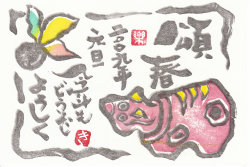 頌春
二〇〇九年
元旦
ことしも
どうぞ
よろしく
き